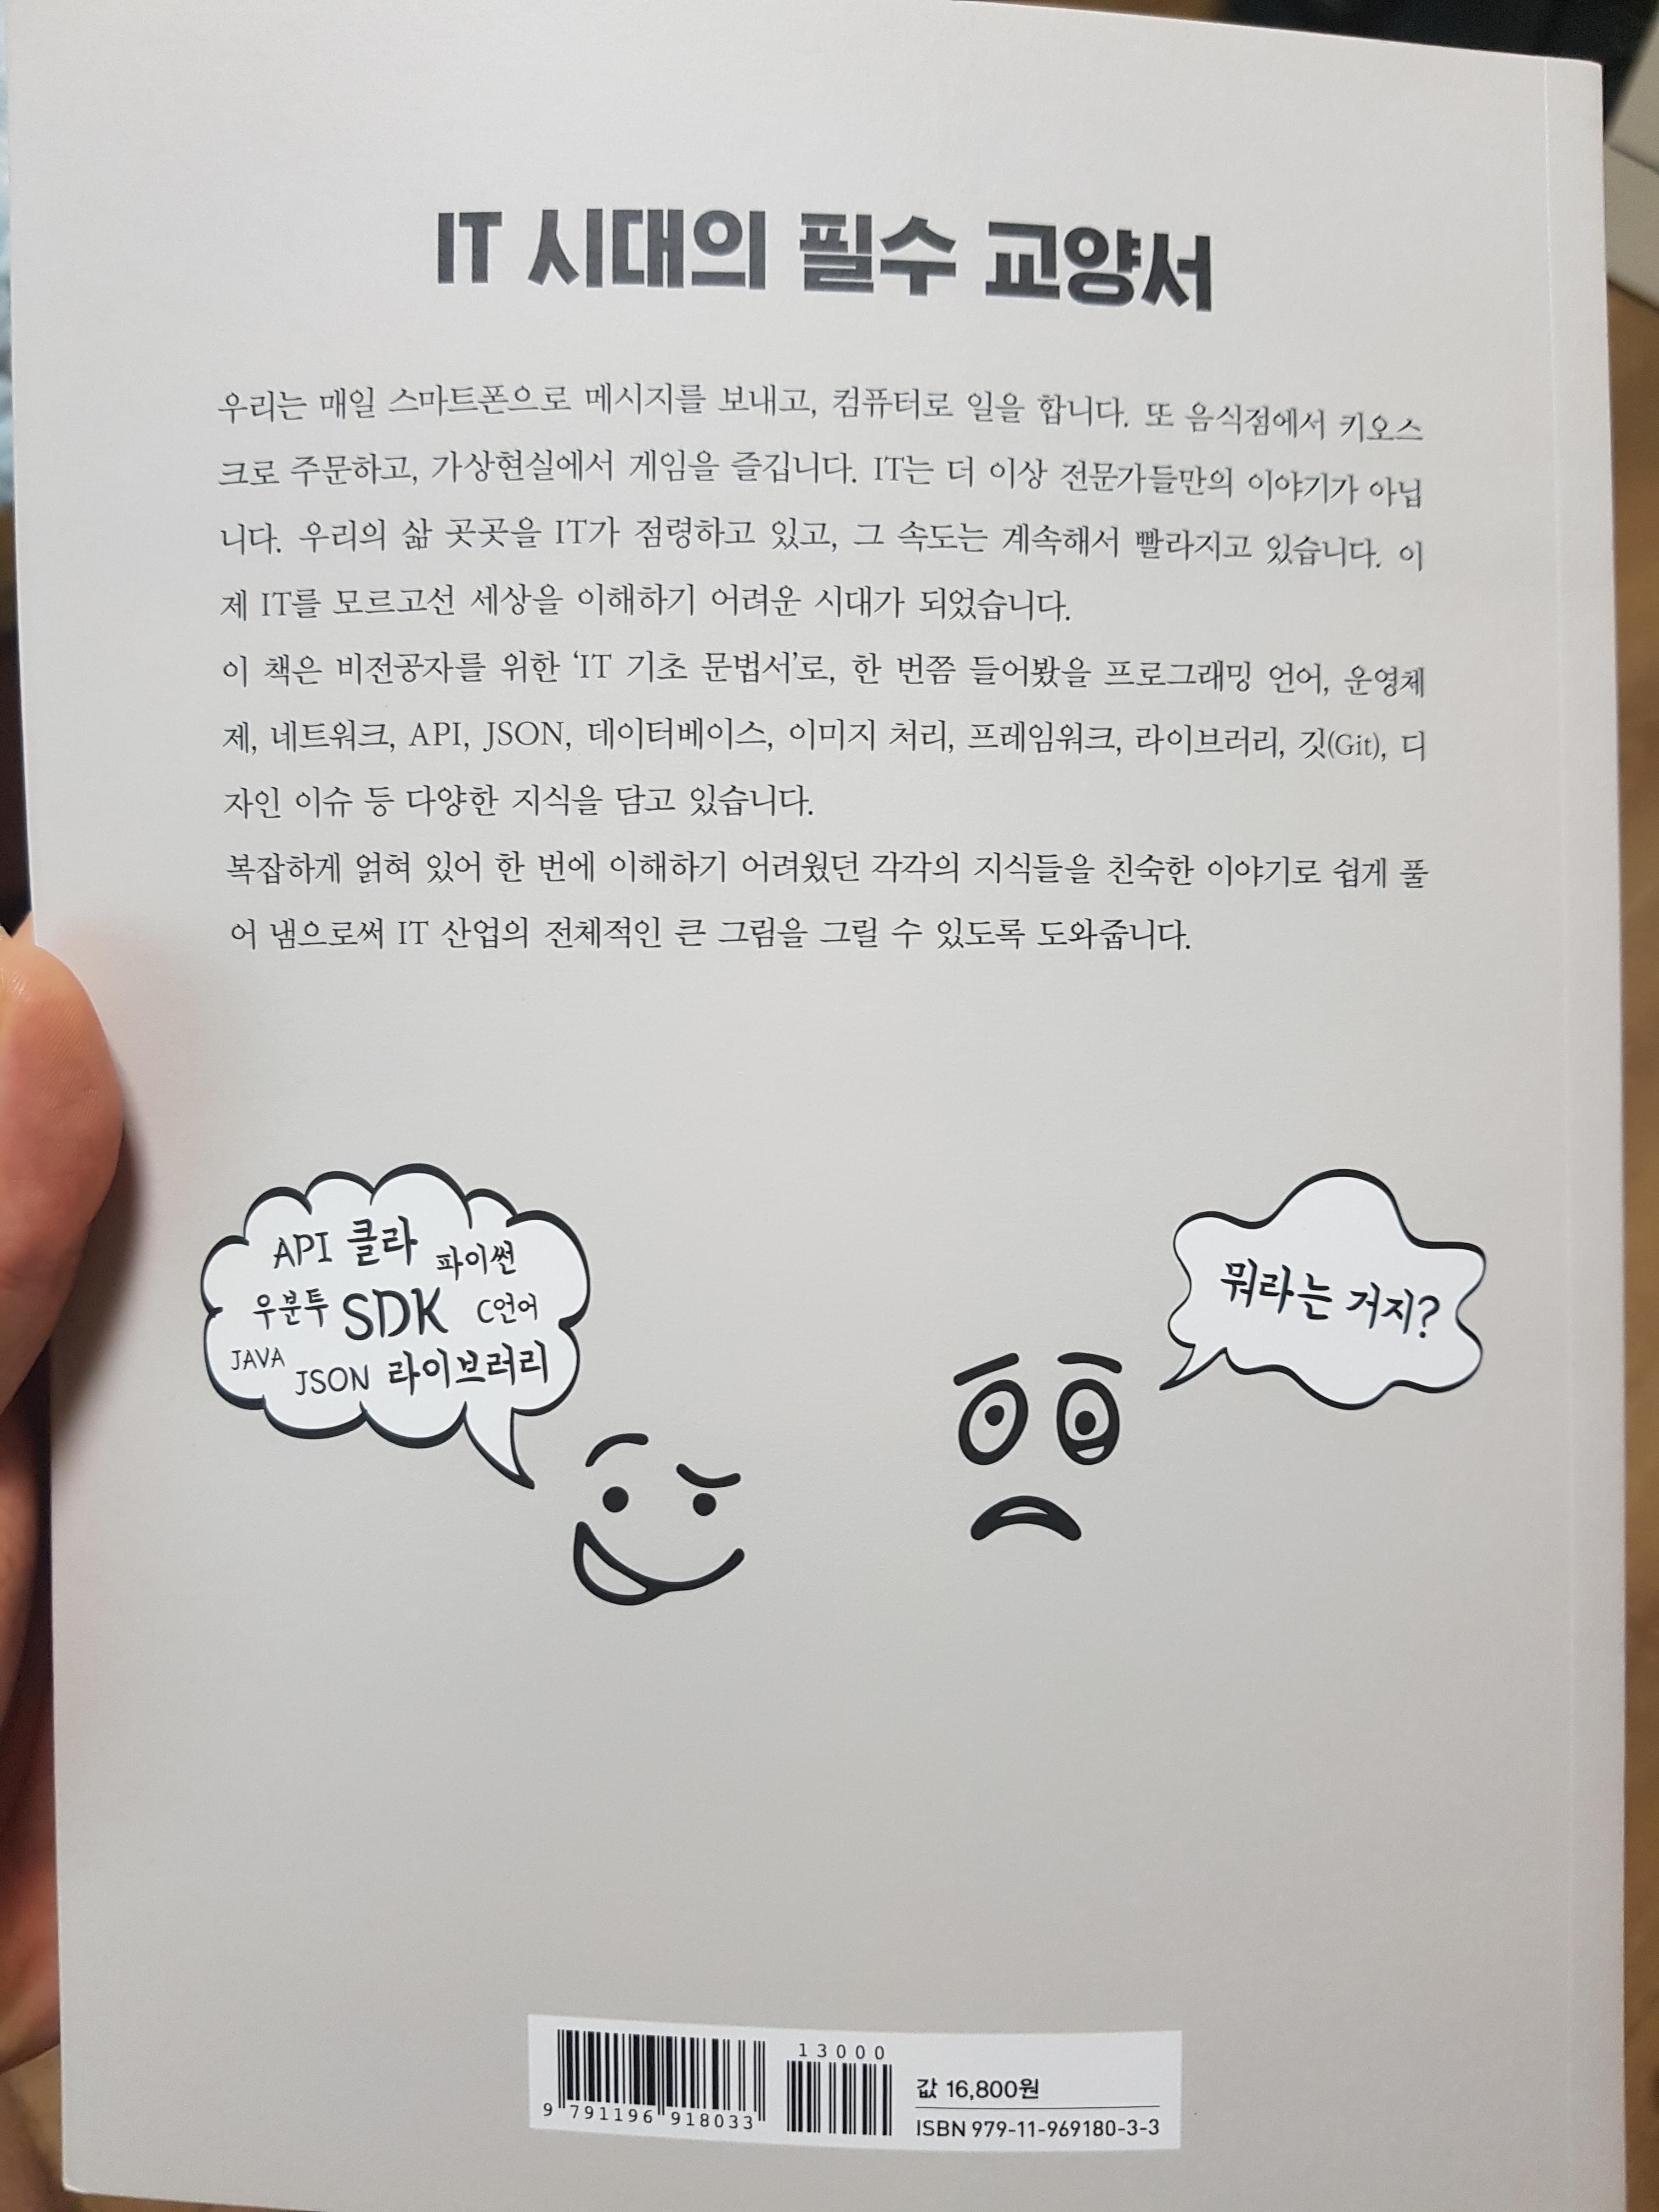 IT 시대의 필수 교양서
우리는 매일 스마트폰으로 메시지를 보내고, 컴퓨터로 일을 합니다. 또 음식점에서 키오스
크로 주문하고, 가상현실에서 게임을 즐깁니다. IT는 더 이상 전문가들만의 이야기가 아닙
니다. 우리의 삶 곳곳을 IT가 점령하고 있고, 그 속도는 계속해서 빨라지고 있습니다. 이
제 IT를 모르고선 세상을 이해하기 어려운 시대가 되었습니다.
이 책은 비전공자를 위한 ‘IT 기초 문법서’로, 한 번쯤 들어봤을 프로그래밍 언어, 운영체
제, 네트워크, API, JSON, 데이터베이스, 이미지 처리, 프레임워크, 라이브러리, 깃(Git), 디
자인 이슈 등 다양한 지식을 담고 있습니다.
복잡하게 얽혀 있어 한 번에 이해하기 어려웠던 각각의 지식들을 친숙한 이야기로 쉽게 풀
어 냄으로써 IT 산업의 전체적인 큰 그림을 그릴 수 있도록 도와줍니다.
API 클라 파이썬
우분투 SDK C언어
JAVA JSON 라이브러리
뭐라는 거지?
13000
9 791196 918033
값 16,800원
ISBN 979-11-969180-3-3